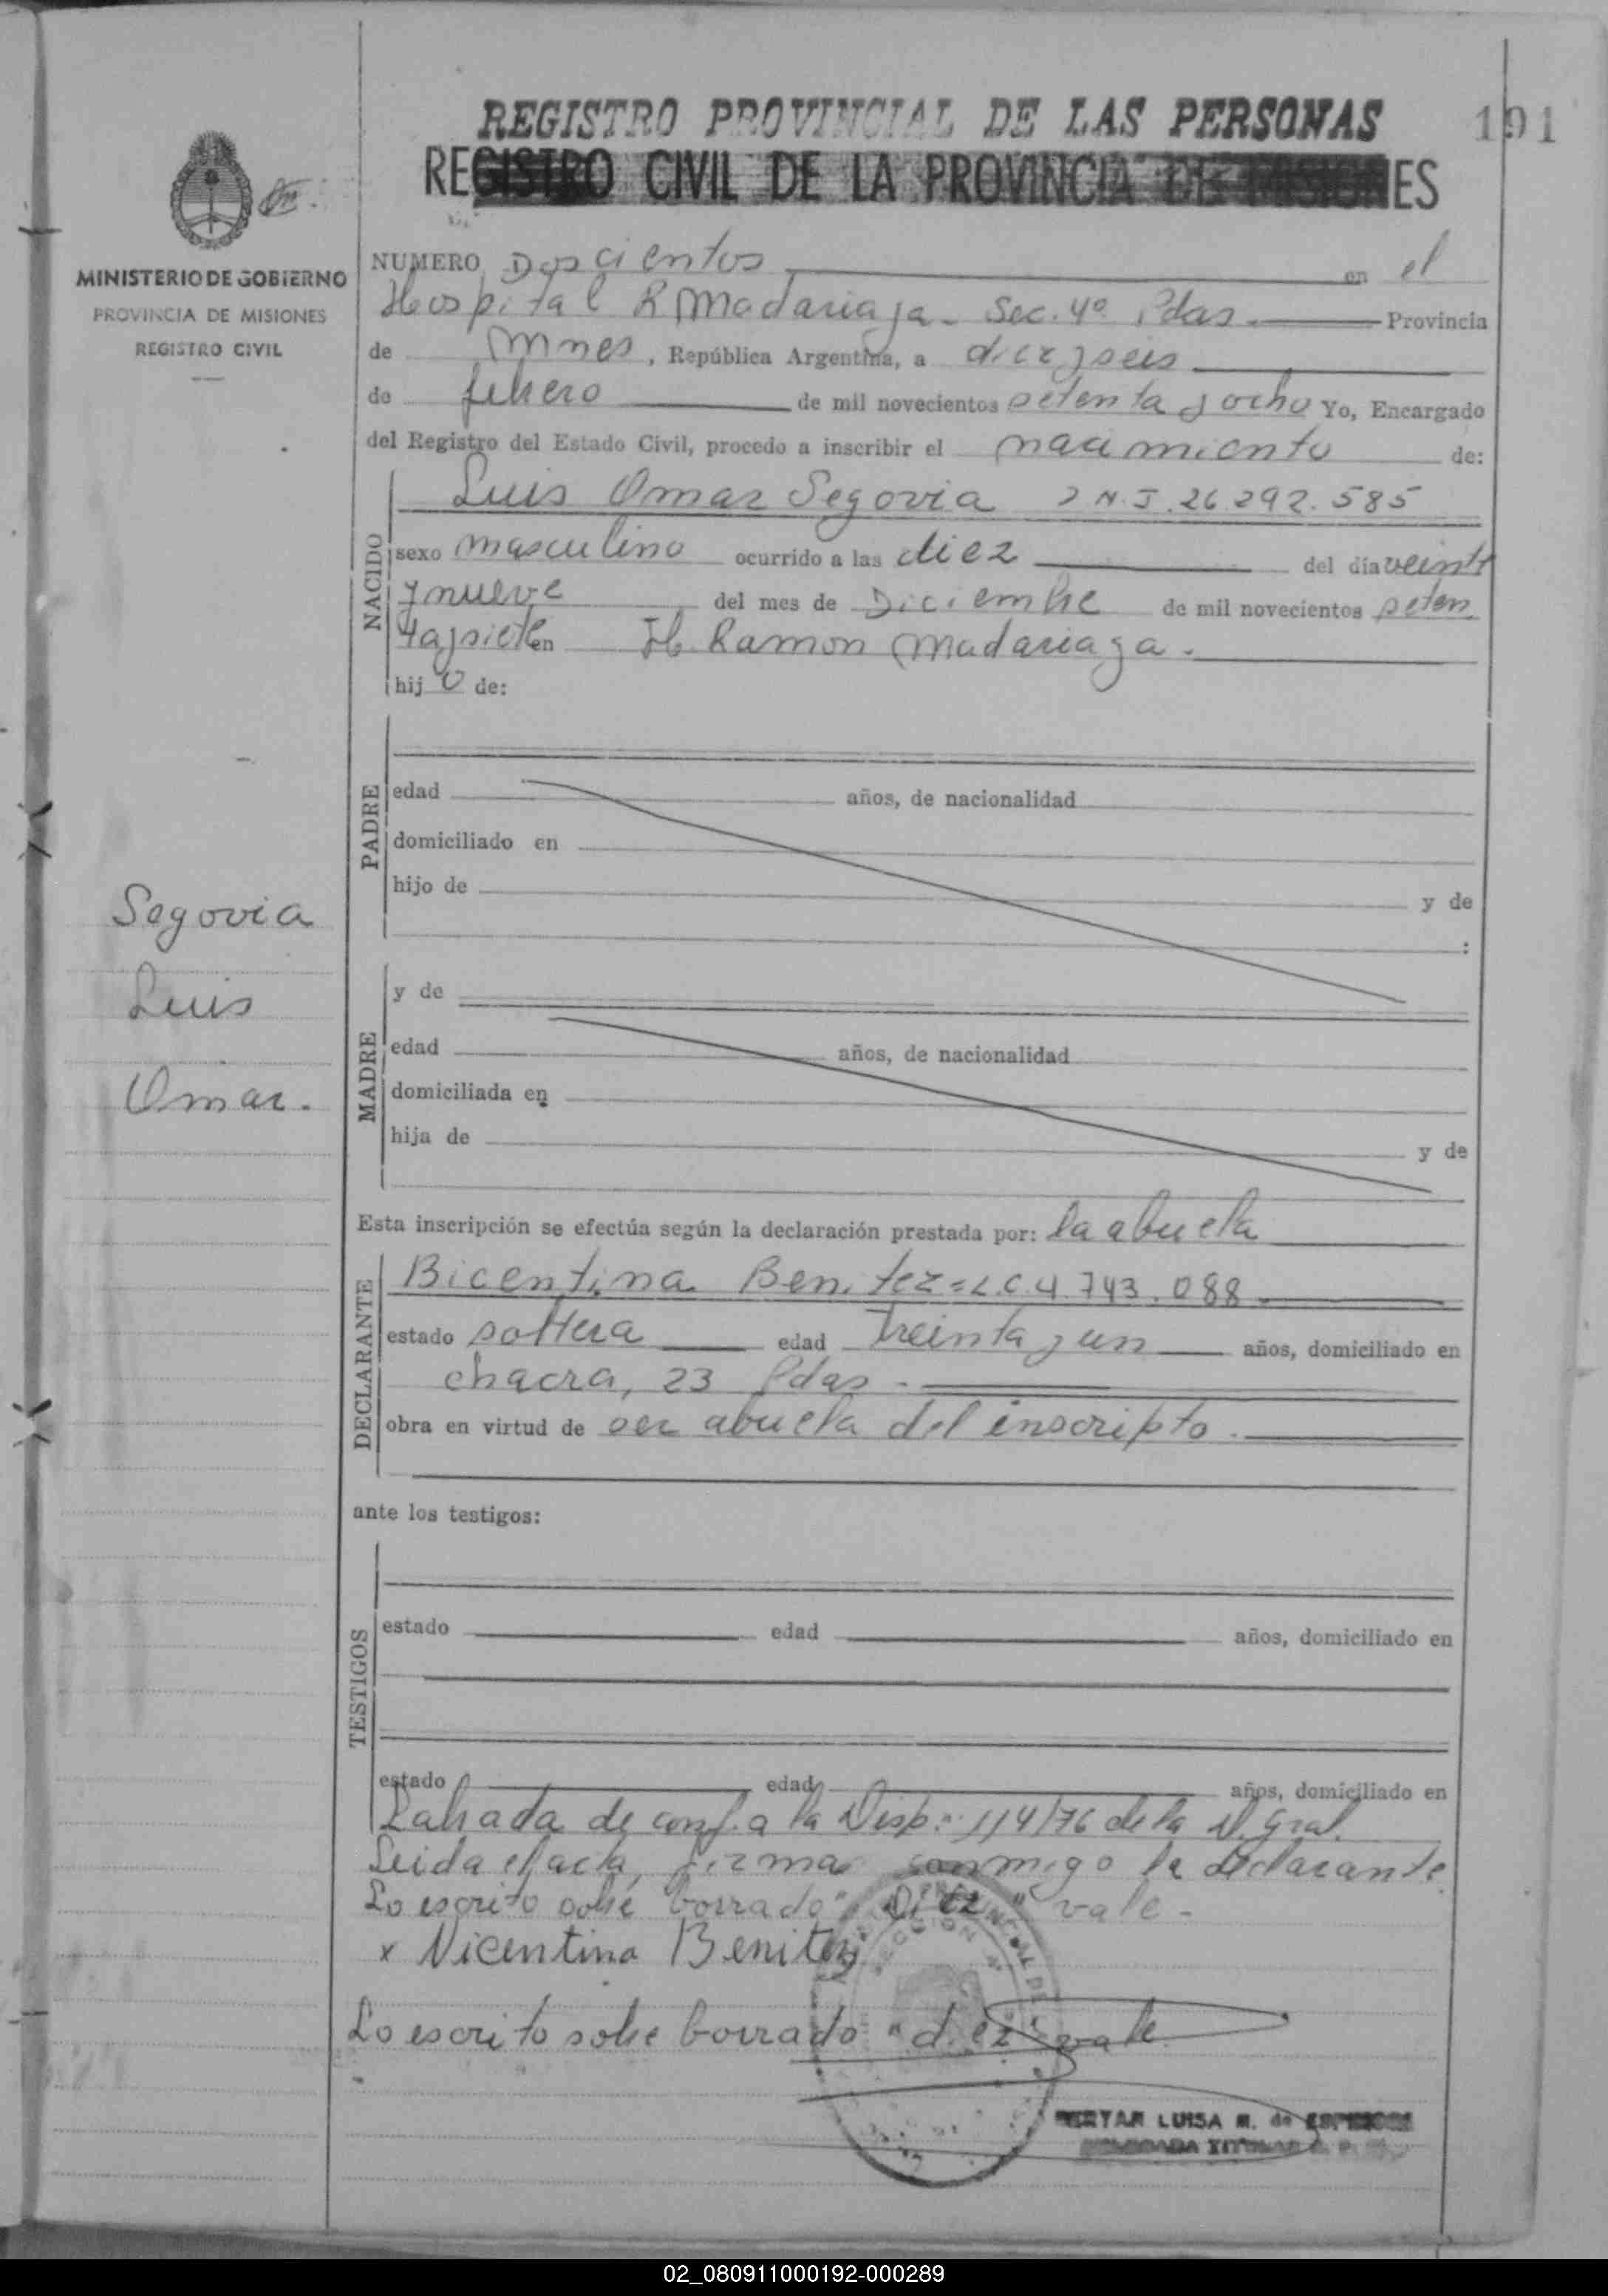 REGISTRO PROVINCIAL DE LAS PERSONAS
191
REGISTRO CIVIL DE LA PROVINCIA DE MISIONES
MINISTERIO DE GOBIERNO
PROVINCIA DE MISIONES
REGISTRO CIVIL
NUMERO Doscientos en el
Hospital R Madariaga - Sec. 4º Pdas. Provincia
de Mnes, República Argentina, a diez y seis
de febrero de mil novecientos setenta y ocho Yo, Encargado
del Registro del Estado Civil, procedo a inscribir el nacimiento de:
NACIDO
Luis Omar Segovia D N.I. 26.292.585
sexo masculino ocurrido a las diez del día veinti
y nueve del mes de Diciembre de mil novecientos seten
ta y siete en H. Ramon Madariaga.
hijo de:
PADRE
edad años, de nacionalidad
domiciliado en
hijo de y de
:
Segovia
Luis
Omar.
MADRE
y de
edad años, de nacionalidad
domiciliada en
hija de y de
Esta inscripción se efectúa según la declaración prestada por: la abuela
DECLARANTE
Bicentina Benitez = L.C. 4.743.088.
estado soltera edad treinta y un años, domiciliado en
chacra, 23 Pdas -
obra en virtud de ser abuela del inscripto.
ante los testigos:
TESTIGOS
estado edad años, domiciliado en
estado edad años, domiciliado en
Labrada de conf. a la Disp. 114/76 de la D. Gral.
Leida el acta, firma conmigo la declarante.
Lo escrito sobre borrado "Diez" vale -
x Vicentina Benitez
Lo escrito sobre borrado "diez" vale
LUISA M. de
02_080911000192-000289